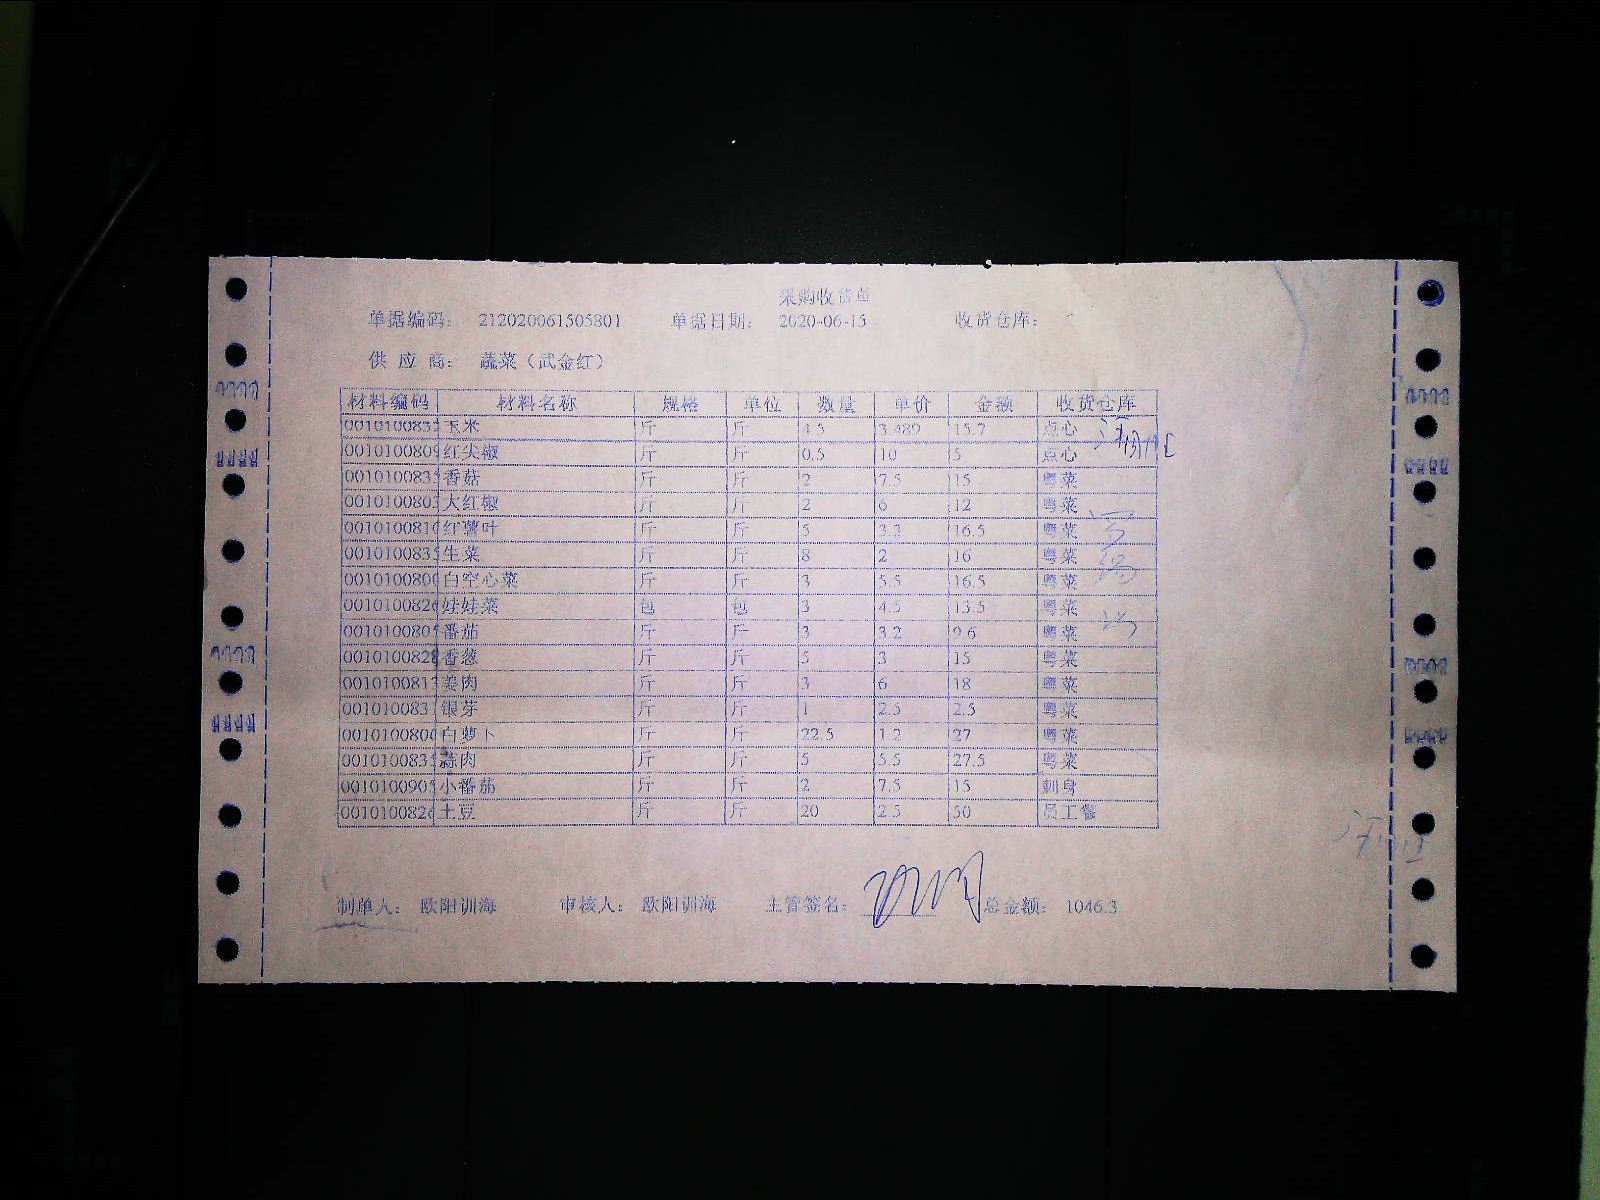 采购收货单
单据编码： 212020061505801 单据日期： 2020-06-15 收货仓库：
供 应 商： 蔬菜（武金红）
材料编码 材料名称 规格 单位 数量 单价 金额 收货仓库
0010100833 玉米 斤 斤 4.5 3.489 15.7 点心
0010100809 红尖椒 斤 斤 0.5 10 5 点心
0010100835 香菇 斤 斤 2 7.5 15 粤菜
0010100803 大红椒 斤 斤 2 6 12 粤菜
0010100810 红薯叶 斤 斤 5 3.3 16.5 粤菜
0010100835 生菜 斤 斤 8 2 16 粤菜
0010100800 白空心菜 斤 斤 3 5.5 16.5 粤菜
0010100826 娃娃菜 包 包 3 4.5 13.5 粤菜
0010100805 番茄 斤 斤 3 3.2 9.6 粤菜
0010100828 香葱 斤 斤 5 3 15 粤菜
0010100813 姜肉 斤 斤 3 6 18 粤菜
0010100831 银芽 斤 斤 1 2.5 2.5 粤菜
0010100800 白萝卜 斤 斤 22.5 1.2 27 粤菜
0010100835 蒜肉 斤 斤 5 5.5 27.5 粤菜
0010100905 小番茄 斤 斤 2 7.5 15 刺身
0010100826 土豆 斤 斤 20 2.5 50 员工餐
制单人： 欧阳训海 审核人： 欧阳训海 主管签名： 总金额： 1046.3